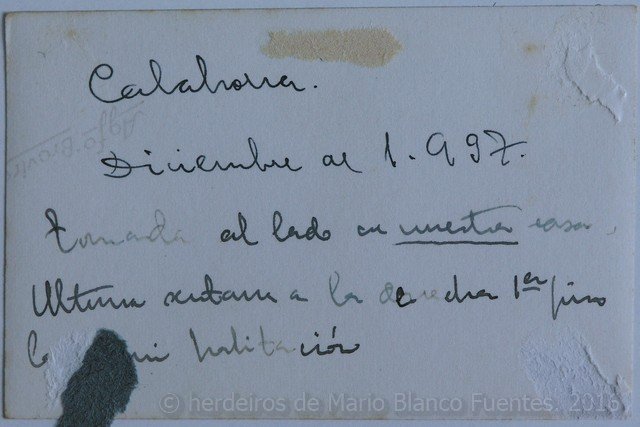 Calahorra.
Agfa-Brovira
Diciembre de 1.937.
tomada al lado de nuestra casa.
Ultima ventana a la derecha 1er piso
mi habitación
© herdeiros de Mario Blanco Fuentes. 2016